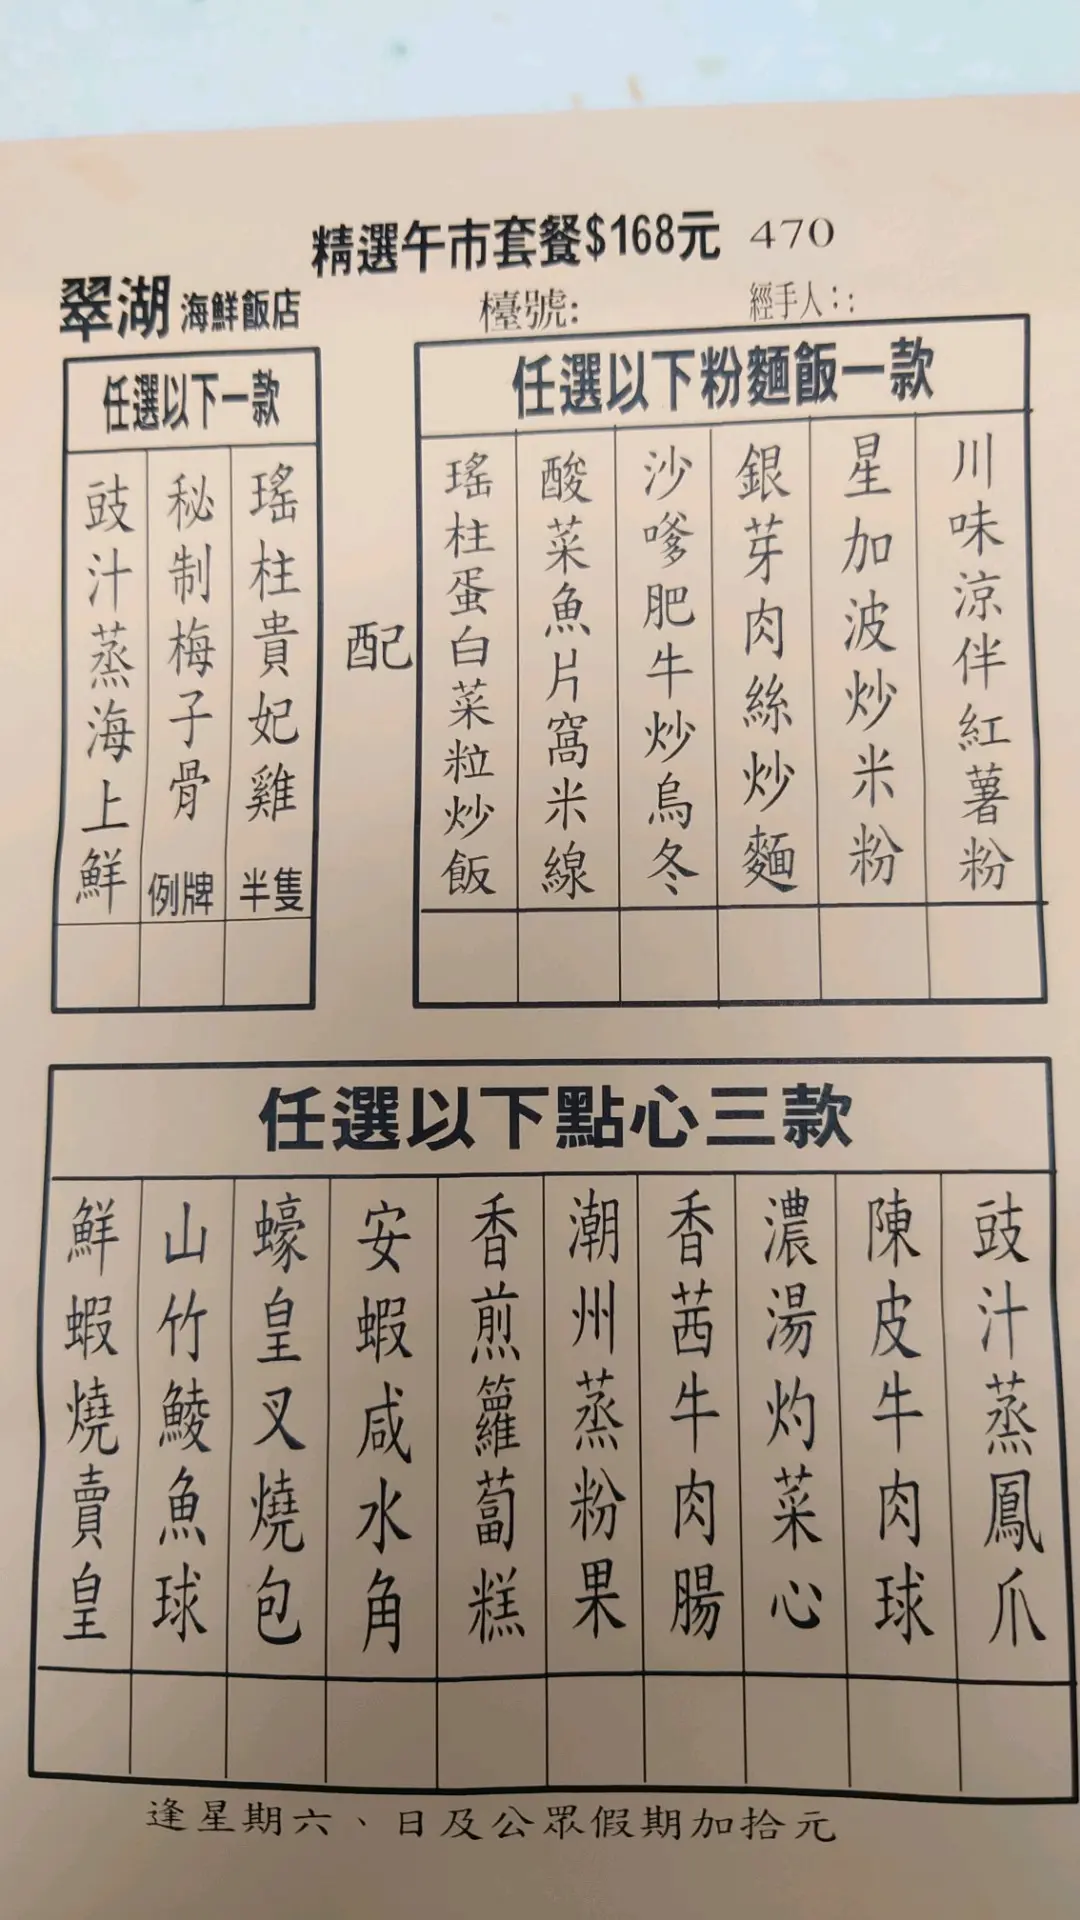 精選午市套餐$168元 470
翠湖 海鮮飯店
檯號:
經手人::
任選以下一款
豉汁蒸海上鮮
秘制梅子骨 例牌
瑤柱貴妃雞 半隻
配
任選以下粉麵飯一款
瑤柱蛋白菜粒炒飯
酸菜魚片窩米線
沙嗲肥牛炒烏冬
銀芽肉絲炒麵
星加波炒米粉
川味涼伴紅薯粉
任選以下點心三款
鮮蝦燒賣皇
山竹鯪魚球
蠔皇叉燒包
安蝦咸水角
香煎籮蔔糕
潮州蒸粉果
香茜牛肉腸
濃湯灼菜心
陳皮牛肉球
豉汁蒸鳳爪
逢星期六、日及公眾假期加拾元